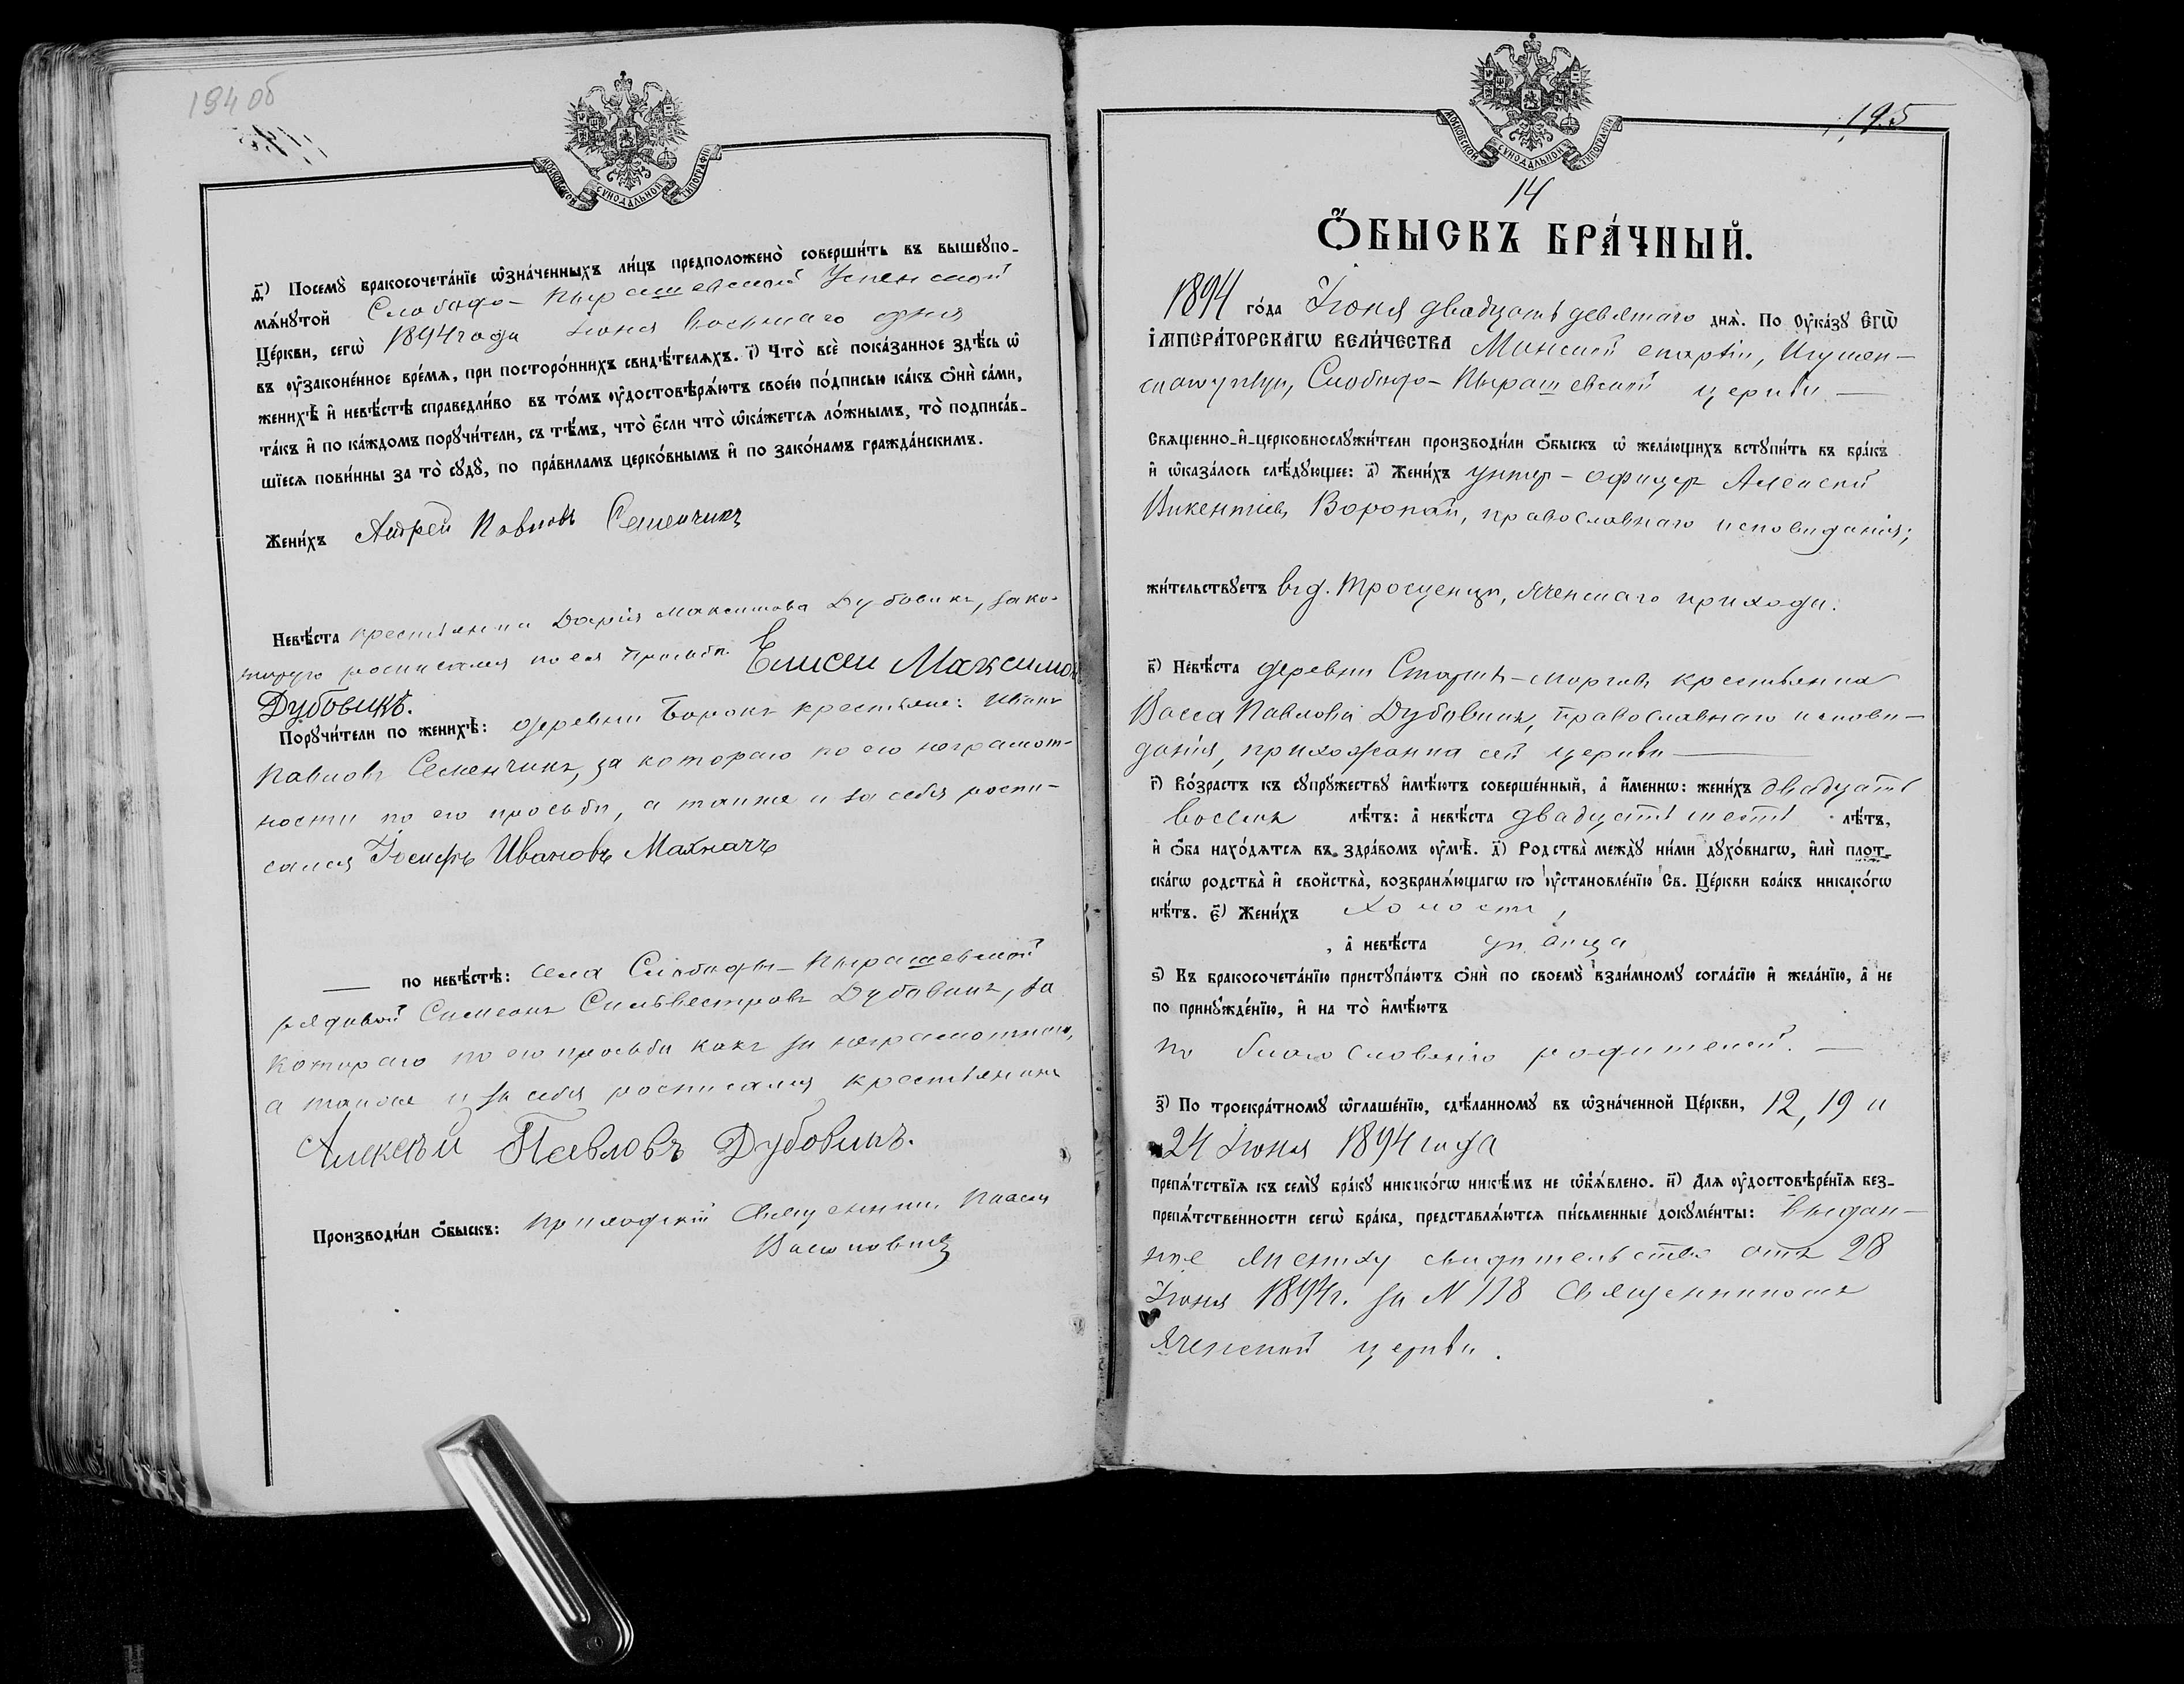 194 об
МОСКОВСКОЙ СѴНОДАЛЬНОЙ ТИПОГРАФІИ
Ѳ҃) Посемꙋ̀ бракосочета́нїе ѡ҆зна́ченныхъ ли́цъ предположено̀ соверши́ть въ вышеꙋпо-
мѧ́нꙋтой Слободо-Пырашевской Успенской
Це́ркви, сегѡ̀ 1894 года Іюня восьмаго дня
въ ᲂу҆законе́нное вре́мѧ, при посторо́ннихъ свидѣ́телѧхъ. І҃) Что̀ всѐ пока́занное здѣ́сь ѡ҆
женихѣ̀ и҆ невѣ́стѣ справедли́во въ то́мъ ᲂу҆достовѣрѧ́ютъ свое́ю по́дписью ка́къ ѻ҆нѝ са́ми,
та́къ и҆ по ка́ждомъ порꙋчи́тели, съ тѣ́мъ, что̀ є҆́сли что̀ ѡ҆ка́жетсѧ ло́жнымъ, то̀ подписа́в-
шїесѧ пови́нны за то̀ сꙋдꙋ̀, по пра́виламъ церко́внымъ и҆ по зако́намъ гражда́нскимъ.
Жени́хъ Андрей Павловъ Семенчикъ
Невѣ́ста крестьянка Дарія Максимова Дубовикъ, за ко-
торую росписался по ея просьбѣ Елисей Максимов
Дубовикъ.
Порꙋчи́тели по женихѣ̀: деревни Борокъ крестьяне: Иванъ
Павловъ Семенчикъ, за котораго по его неграмот-
ности по его просьбѣ, а также и за себя роспи-
сался Іосифъ Ивановъ Махначъ
— по невѣ́стѣ: села Слободы-Пырашевской
рядовой Симеонъ Сильвестровъ Дубовикъ, за
котораго по его просьбѣ какъ за неграмотнаго,
а также и за себя росписался крестьянинъ
Алексѣй Павловъ Дубовикъ.
Производи́ли ѻ҆́быскъ: Приходскій Священникъ
195
МОСКОВСКОЙ СѴНОДАЛЬНОЙ ТИПОГРАФІИ
14
Ѻ҆́БЫСКЪ БРА́ЧНЫЙ.
1894 го́да Іюня двадцать девятаго днѧ̀. По ᲂу҆ка́зꙋ є҆гѡ̀
І҆МПЕРА́ТОРСКАГѠ ВЕЛИ́ЧЕСТВА Минской епархіи, Игумен-
скаго уѣзда, Слободо-Пырашевской церкви —
Свѧщенно-и҆-церковнослꙋжи́тели производи́ли ѻ҆́быскъ ѡ҆ жела́ющихъ встꙋпи́ть въ бра́къ
и҆ ѡ҆каза́лось слѣ́дꙋющее: а҃) Жени́хъ унтер-офицер Алексѣй
Викентіевъ Воропай, православнаго исповѣданія;
жи́тельствꙋетъ въ д. Тросценцѣ, Яченскаго прихода.
в҃) Невѣ́ста деревни крестьянка
Васса Павлова Дубовикъ, православнаго исповѣ-
данія, прихожанка сей церкви —
г҃) Во́зрастъ къ сꙋпрꙋ́жествꙋ и҆мѣ́ютъ соверше́нный, а҆ и҆́меннѡ: жени́хъ двадцать
восемь лѣ́тъ: а҆ невѣ́ста двадцать шесть лѣ́тъ,
и҆ ѻ҆́ба нахо́дѧтсѧ въ здра́вомъ ᲂу҆мѣ̀. д҃) Родства̀ междꙋ̀ ни́ми дꙋхо́внагѡ, и҆лѝ плот-
ска́гѡ родства̀ и҆ сво́йства̀, возбранѧ́ющагѡ по ᲂу҆становле́нїю Св. Це́ркви бра́къ никако́гѡ
нѣ́тъ. є҃) Жени́хъ холостъ,
, а҆ невѣ́ста дѣвица
ѕ҃) Къ бракосочета́нїю пристꙋпа́ютъ ѻ҆нѝ по своемꙋ̀ взаи́мномꙋ согла́сїю и҆ жела́нїю, а҆ не
по принꙋжде́нїю, и҆ на то̀ и҆мѣ́ютъ
по благословенію родителей. —
з҃) По троекра́тномꙋ ѡ҆глаше́нїю, сдѣ́ланномꙋ въ ѡ҆зна́ченной Це́ркви, 12, 19 и
24 Іюня 1894 года
препѧ́тствїѧ къ семꙋ̀ бра́кꙋ никако́гѡ никѣ́мъ не ѡ҆б̾ѧ́влено. и҃) Длѧ ᲂу҆достовѣре́нїѧ без-
препѧ́тственности сегѡ̀ бра́ка, представлѧ́ютсѧ пи́сьменные докꙋме́нты: выдан-
ное жениху свидѣтельство отъ 28
Іюня 1894 г. за N 118 Священникомъ
Яченской церкви.